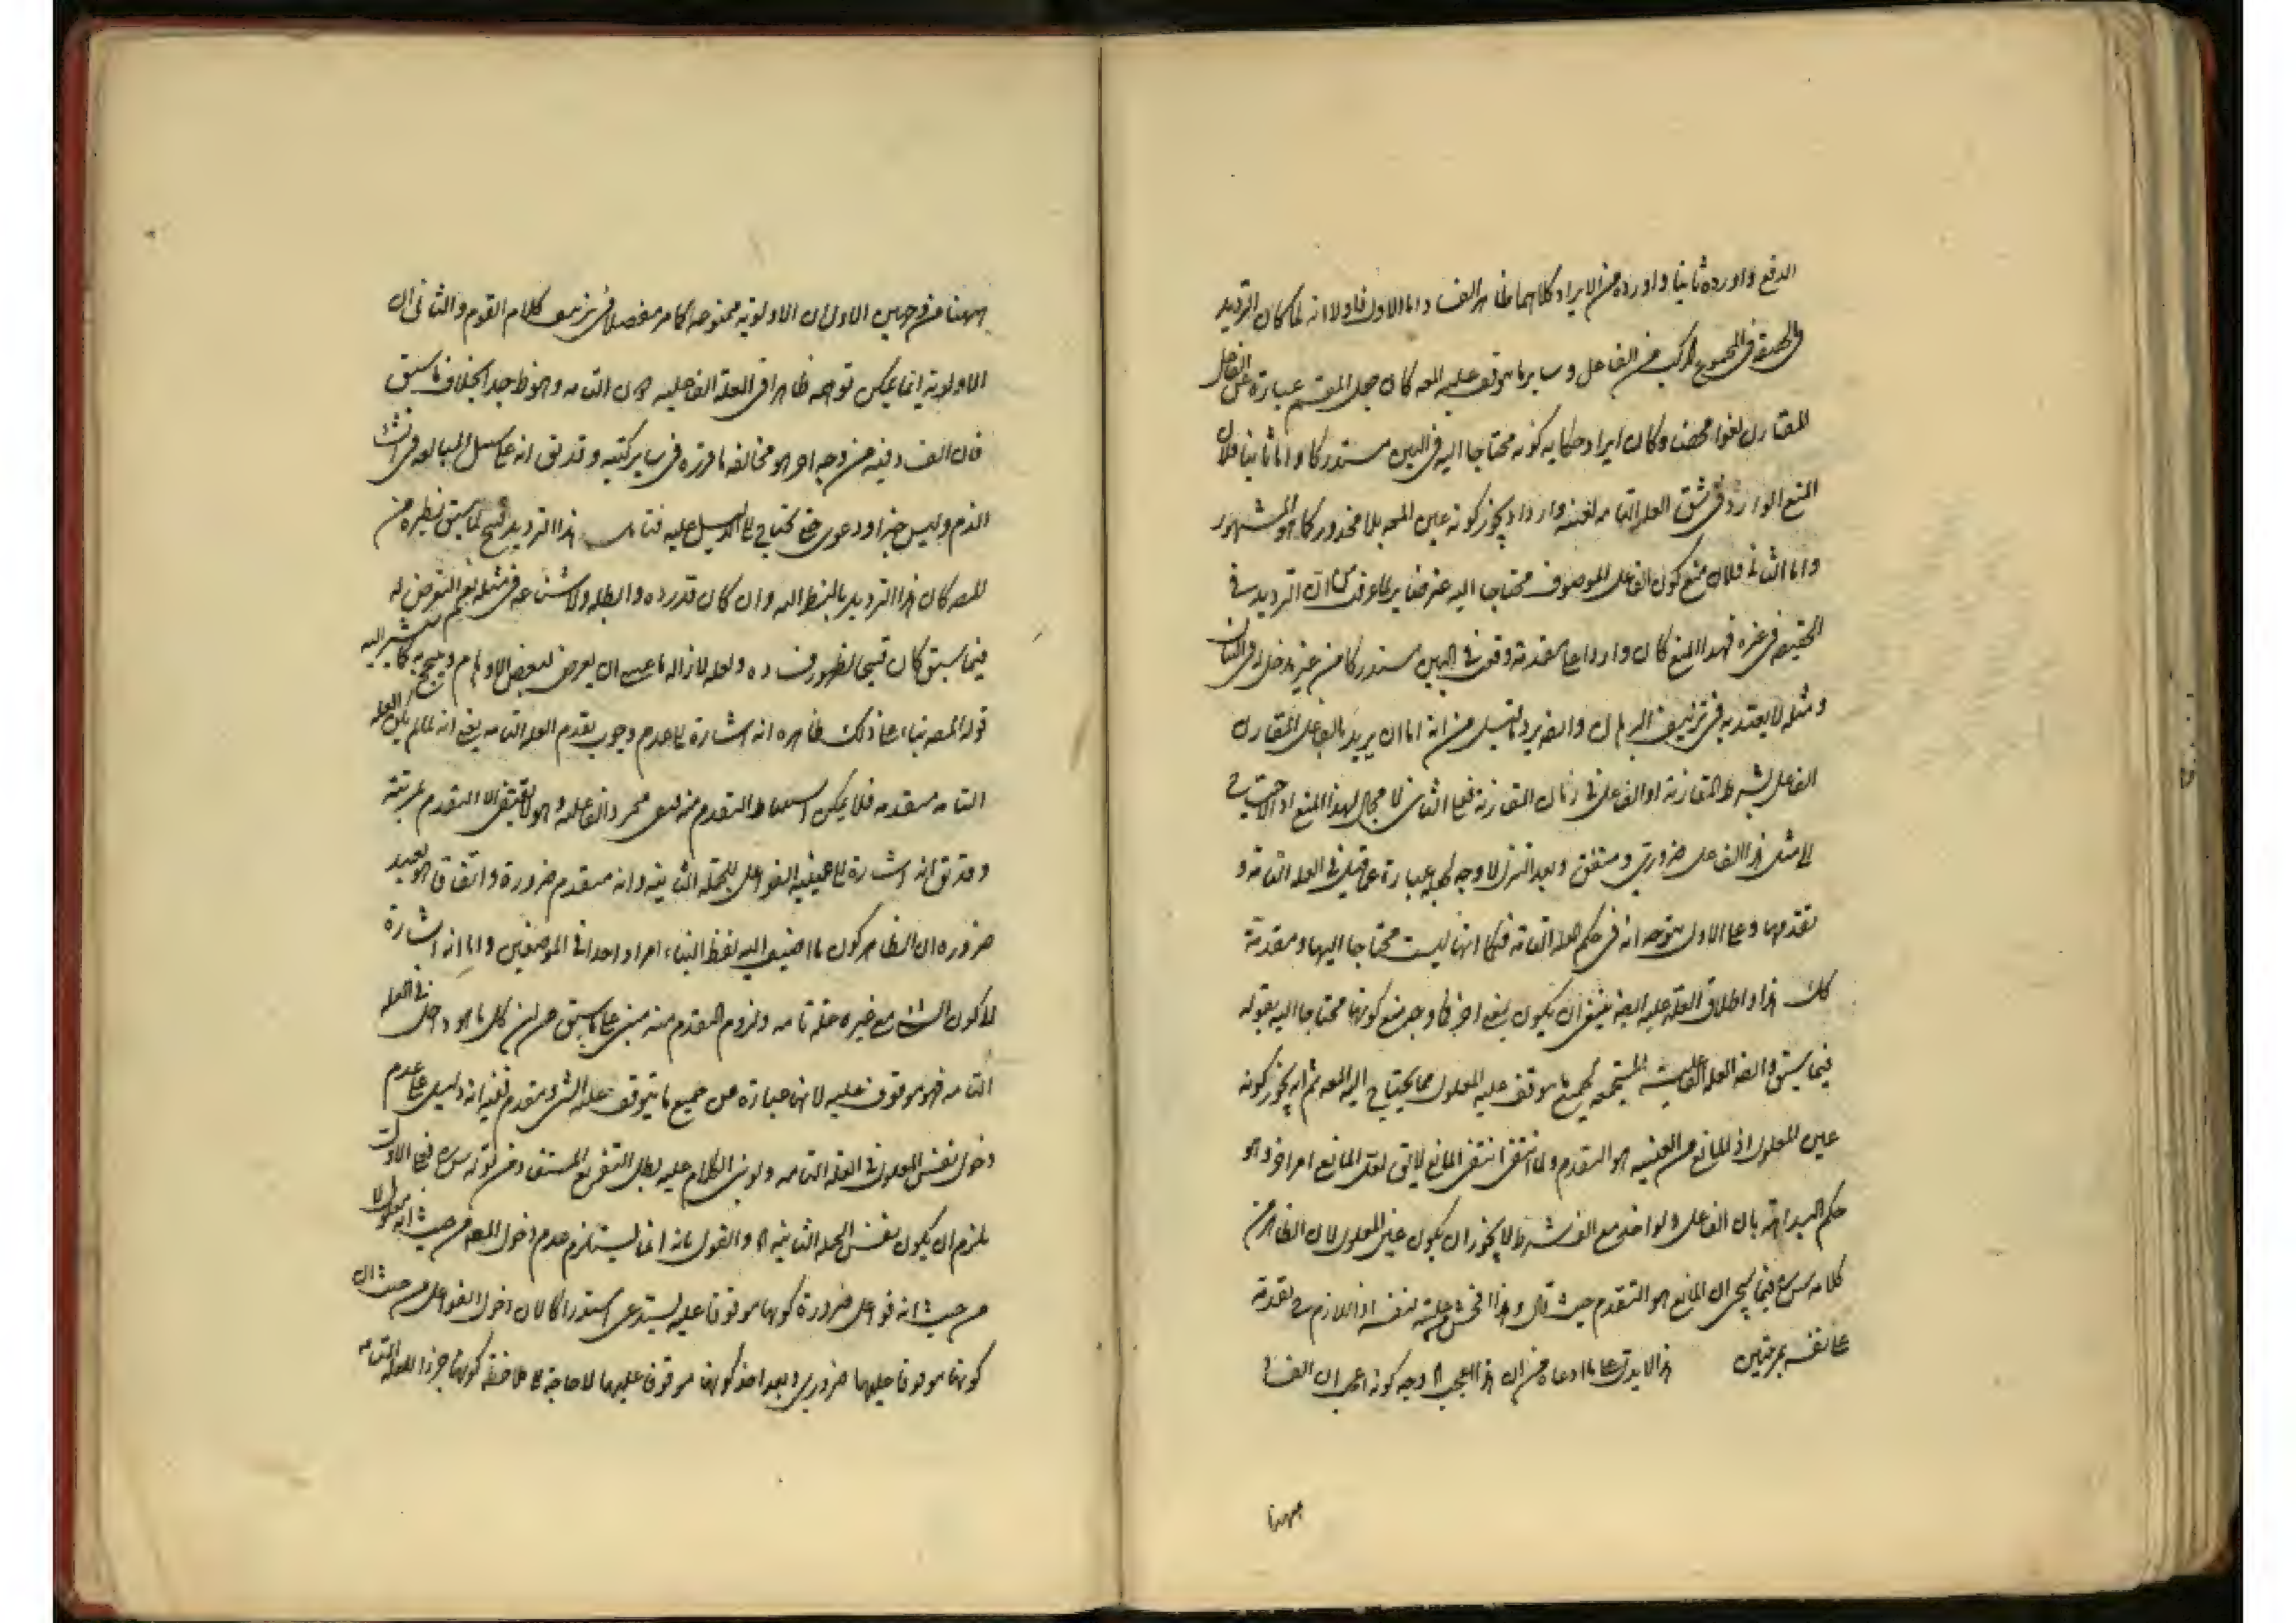 الدفع واورده ثانيا واورده من الايراد كلاهما ظاهر الفساد اما الاول فاولا انه لما كان الترديد
في المجموع المركب من الفاعل وساير ما يتوقف عليه المعه كان جعل المقسم عبارة عن الفاعل
المقارن لغوا محضا وكان ايراد حكاية كونه محتاجا اليه في البين مستدركا واما ثانيا فلان
المنع الوارد في شق العلة التامة لنفسه وارد اذ يجوز كونه عين المعه بلا محذور كما هو المشهور
واما الثاني فلان منع كون الفاعل الموصوف محتاجا اليه من ان الترديد في
الحقيقة في غيره فهذا المنع كان واردا على مقدمة وقعت في البين مستدركا من غير مدخل له في البيان
ومثله لا يعتد به في تزييف البرهان وايضا يرد من انه اما ان يريد بالفاعل المقارن
الفاعل بشرط المقارنة او الفاعل في زمان المقارنة فعلى الثاني لا مجال لهذا المنع اذ الاحتياج
الى مثل هذا الفاعل ضروري ومتفق وبعد التنزل لا وجه لجعله عبارة عما قيل في العلة التامة و
تقدمها وعلى الاول يتوجه انه في حكم العلة التامة فكما انها ليست محتاجا اليها ومقدمة
كك هذا واطلاق العلة عليه ايضا ينبغي ان يكون بمعنى اخر فما وجه منع كونها محتاجا اليه بقوله
فيما سبق وايضا العلة المستجمعة لجميع ما يتوقف عليه المعلول مما يحتاج اليه المعه ثم انه يجوز كونه
عين المعلول اذ المانع من العينية هو التقدم ولما انتفى انتفى المانع لا يقال لعل المانع امر اخر وهو
حكم البداهة بان الفاعل ولو اخذ مع الف شرط لا يجوز ان يكون عين المعلول لان الظاهر من
كلامه فيما سيجئ ان المانع هو التقدم حيث قال وهذا افحش من علية نفسه اذ اللازم تقدمه
على نفسه بمرتبتين هذا لا يدل على ما ادعاه من ان هذا اعجب اذ وجه كونه اعجب ان الفساد
ههنا
ههنا من وجهين الاول ان الاولوية ممنوعة كما مر مفصلا في تزييف كلام القوم والثاني ان
الاولوية انما يمكن توهمه ظاهرا في العلة الفاعلية دون التامة وهو ظ جدا بخلاف ما سبق
فان الفساد فيه من وجه اخر هو مخالفة ما قرره في ساير كتبه وقد يق انه على سبيل المبالغة في انشاء
الذم وليس خبرا ودعوى حتى يحتاج الى الدليل عليه فتأمل هذا الترديد قبيح لما سبق نظيره من
المصد كان هذا الترديد بالنظر اليه وان كان قد رده وابطله ولا شناعة في مثله نعم التعرض له
فيما سبق كان قبيحا لظهور فساده ولعله لازالة ما عسى ان يعرض لبعض الاوهام كما يشير اليه
قوله المصد بناء على ذلك ظاهره انه اشارة الى عدم وجوب تقدم العلة التامة يعني انه لما لم يكن العلة
التامة متقدمة فلا يمكن استنباط التقدم من مجرد الفاعلة وهو لا يقتضى الا التقدم بمرتبة
وقد يق انه اشارة الى عينية الفواعل للجملة الثانية وانه متقدم ضرورة واتفاقا وهو بعيد
ضرورة ان الظاهر كون ما اضيف اليه لفظ البناء امرا واحدا في الموضعين واما انه اشارة
الى كون الشئ مع غيره علة تامة ولزوم التقدم منه مبني على ما سبق من ان كل ما هو داخل في العلة
التامة فهو موقوف عليه لانها عبارة عن جميع ما يتوقف عليه الشئ ومتقدم ففيه انه دليل على عدم
دخول نفس المعلول في العلة التامة ولو بني الكلام عليه بطل التفريع المستفاد من قوله فعلى الاول
يلزم ان يكون نفس الجملة الثانية اه والقول بانه انما يستلزم عدم دخول المعه من حيث انه معلول لا
من حيث انه فواعل ضرورة كونها موقوفا عليه يستدعى استدراكا لان دخول الفواعل من حيث ان
كونها موقوفا عليها ضروري وبعد اخذ كونها موقوفا عليها لا حاجة الى ملاحظة كونها جزءا للعلة التامة